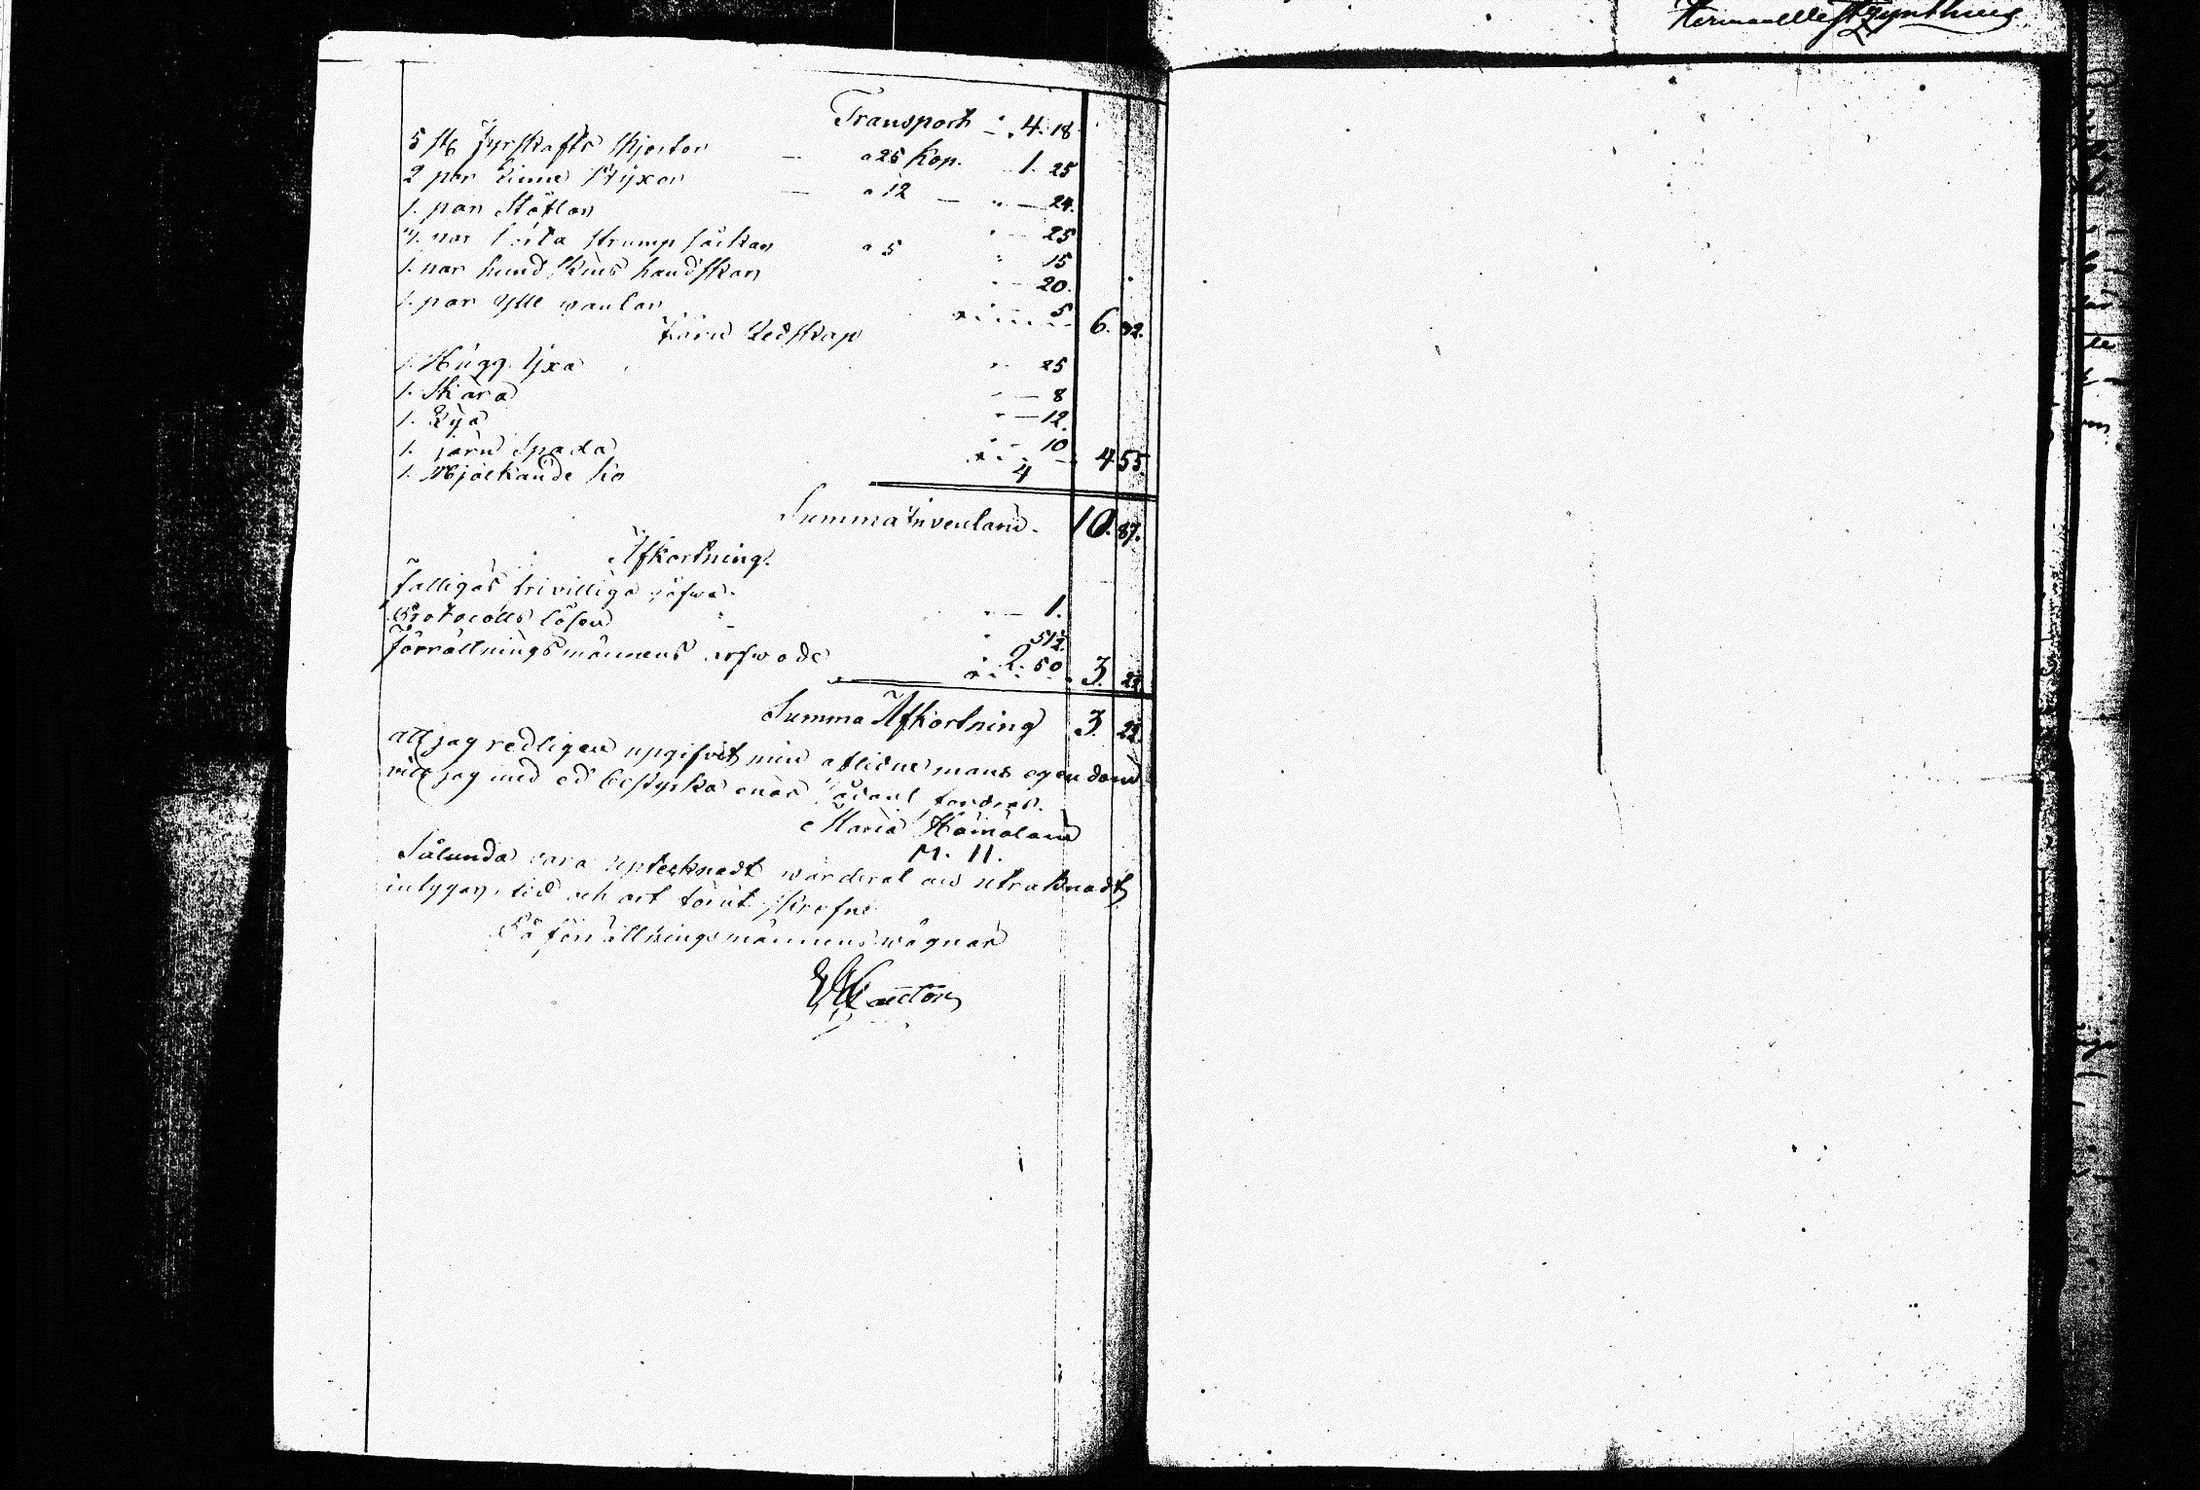 Transport " 4. 18
5 st. fyrskafts skjortor - a 25 Kop. 1. 25
2 par Linne Byxor - a 12 - " - 24.
1. par Stöflar " - 25
par strump sockar a 5 " 15
1. par hund skins handskar " - 20.
1. par Ylle vantar " 5 6. 32.
Järn Redskap
1. Hugg Yxa " 25
1. Skära " - 8
1. Lya " - 12.
1. järn Spada " - 10
1. Mjölkande ko 4 4 55.
Summa Inventarii. 10. 87.
Afkortning.
Fattigas frivilliga gåfva. " - 1.
Protocolls lösen " 51½
Förrättningsmännens arfwode " 2. 50 3. 22
Summa Afkortning 3. 22
att jag redligen upgifvit min aflidne mans egendom
vill jag med ed bestyrka enär sådant fordras.
Maria Hämäläin
M. H.
Sålunda vara uptecknadt wärderat och uträknadt
intygar, tid och ort förut skrefne
På förrättningsmännens wägnar